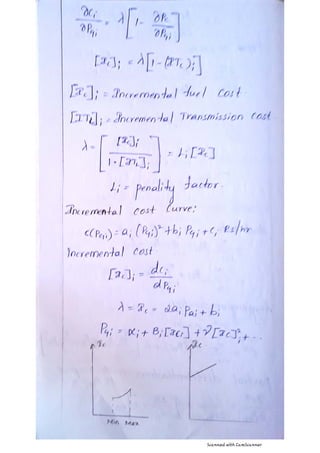 ∂ci/∂Pgi = λ[1 - ∂PL/∂Pgi]
[Ic]i = λ[1-(ITL)i]
[Ic]i = Incremental fuel cost
[ITL]i = Incremental Transmission cost
λ = [[Ic]i / 1-[ITL]i] = Li [Ic]
Li = penality factor.
Incremental cost curve:
c(PGi) = ai (Pgi)² + bi Pgi + ci Rs/hr
Incremental cost
[Ic]i = dci/dPgi
λ = Ic = 2ai PGi + bi
Pgi = αi + βi [Ic]i + γ [Ic]i² + ...
Ic Ic
Min Max
Scanned with CamScanner